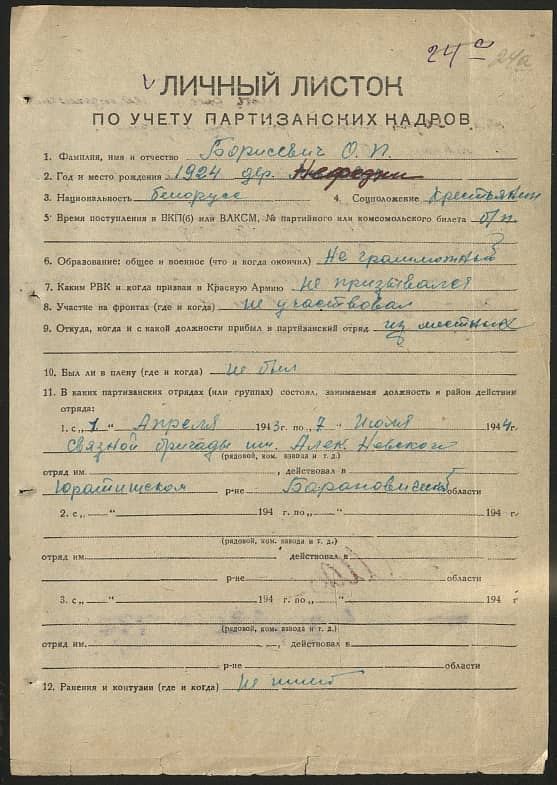 24а
24а
ЛИЧНЫЙ ЛИСТОК
ПО УЧЕТУ ПАРТИЗАНСКИХ КАДРОВ
1. Фамилия, имя и отчество Борисевич О. П.
2. Год и место рождения 1924 дер.
3. Национальность белорусс 4. Соцположение Крестьянин
5 Время поступления в ВКП(б) или ВЛКСМ, № партийного или комсомольского билета б/п
6. Образование: общее и военное (что и когда окончил) Не грамотный
7. Каким РВК и когда призван в Красную Армию не призывался
8. Участие на фронтах (где и когда) не участвовал
9. Откуда, когда и с какой должности прибыл в партизанский отряд из местных
10. Был ли в плену (где и когда) не был
11. В каких партизанских отрядах (или группах) состоял, занимаемая должность и район действии
отряда:
1. с „1" Апреля 1943г. по „7" Июля 1944г.
Связной бригады им. Алек. Невского
(рядовой, ком. взвода и т. д.)
отряд им. , действовал в
Юратишском р-не Барановичской области
2. с „ " 194 г. по „ " 194 г.
(рядовой, ком. взвода и т. д.)
отряд им. , действовал в
р-не области
3. с „ " 194 г. по „ " 194 г
(рядовой, ком. взвода и т. д.)
отряд им. , действовал в
р-не области
12. Ранения и контузии (где и когда) не имел